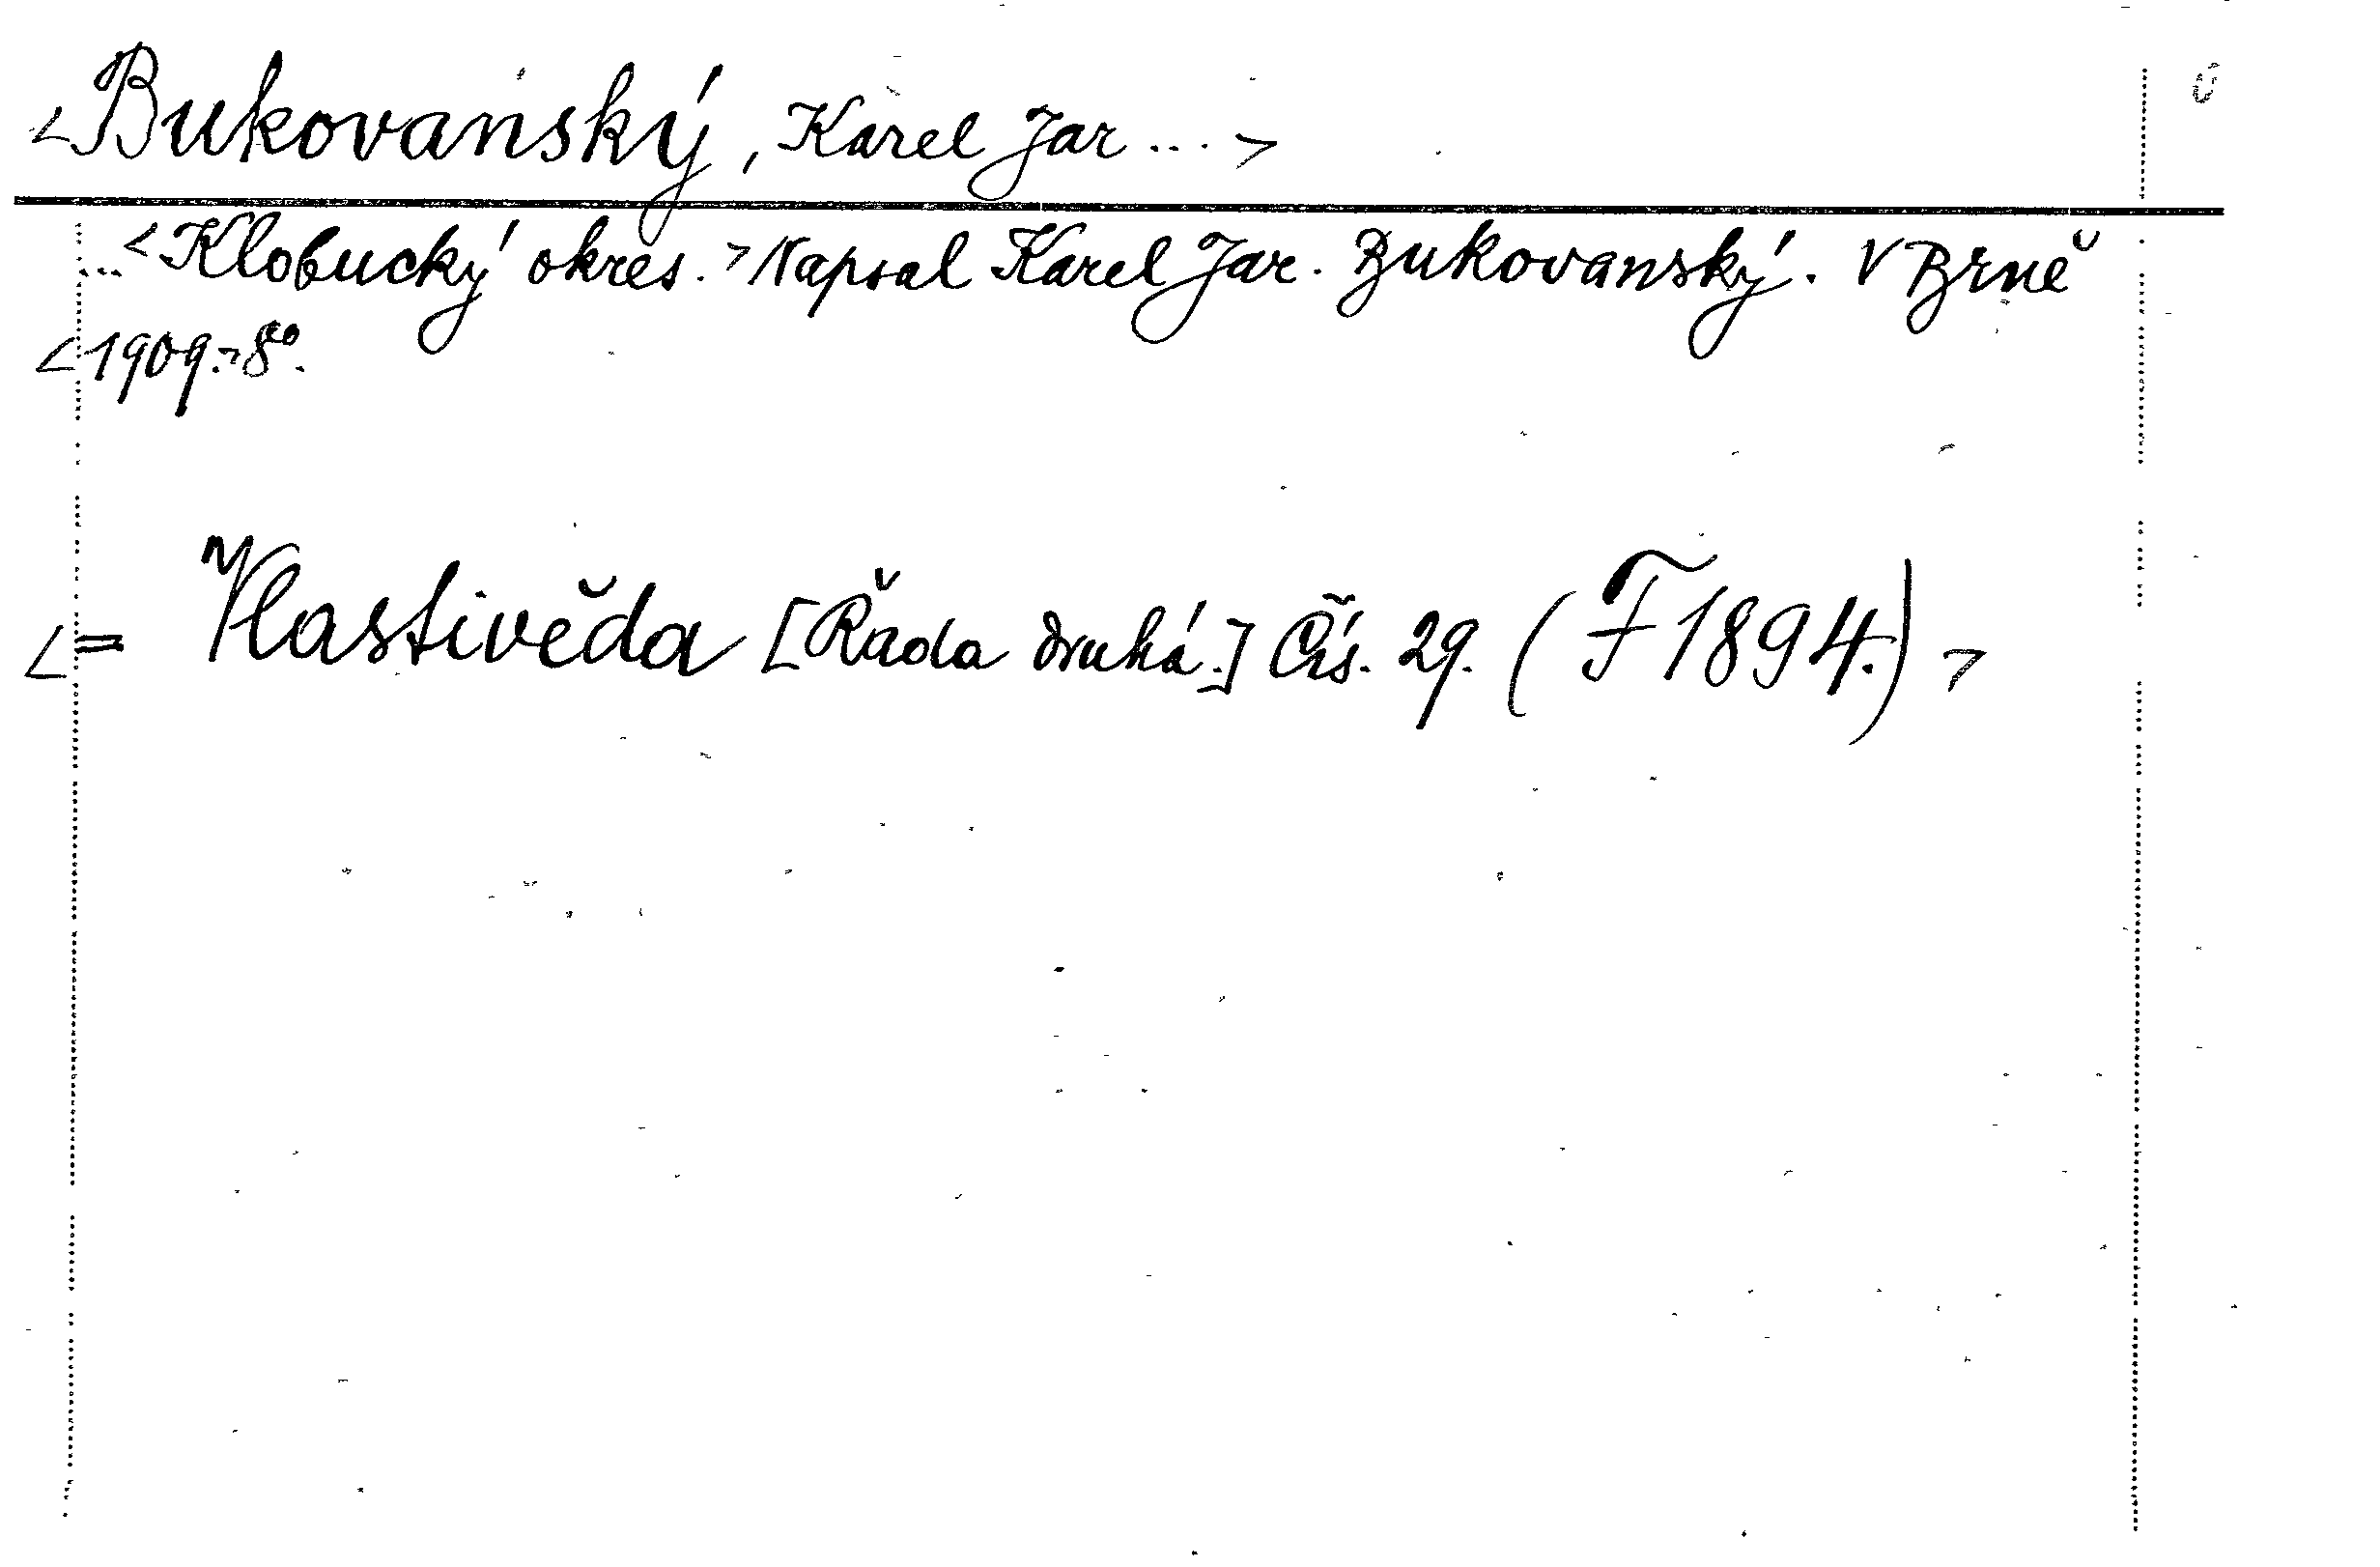 <Bukovanský, Karel Jar ... >
... <Klobucký okres.> Napsal Karel Jar. Bukovanský. V Brně
<1909.> 8º.
<= Vlastivěda [Řada druhá.] Čís. 29. (F 1894.) >